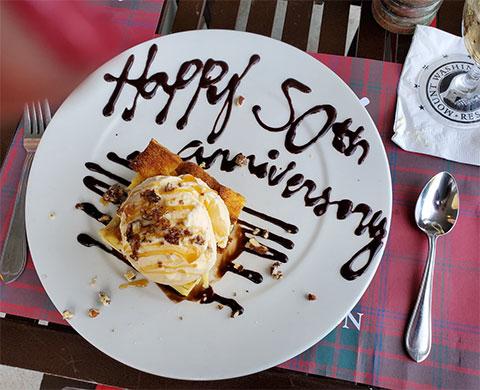 Happy 50th
anniversary
MOUNT WASHIN
RES
N